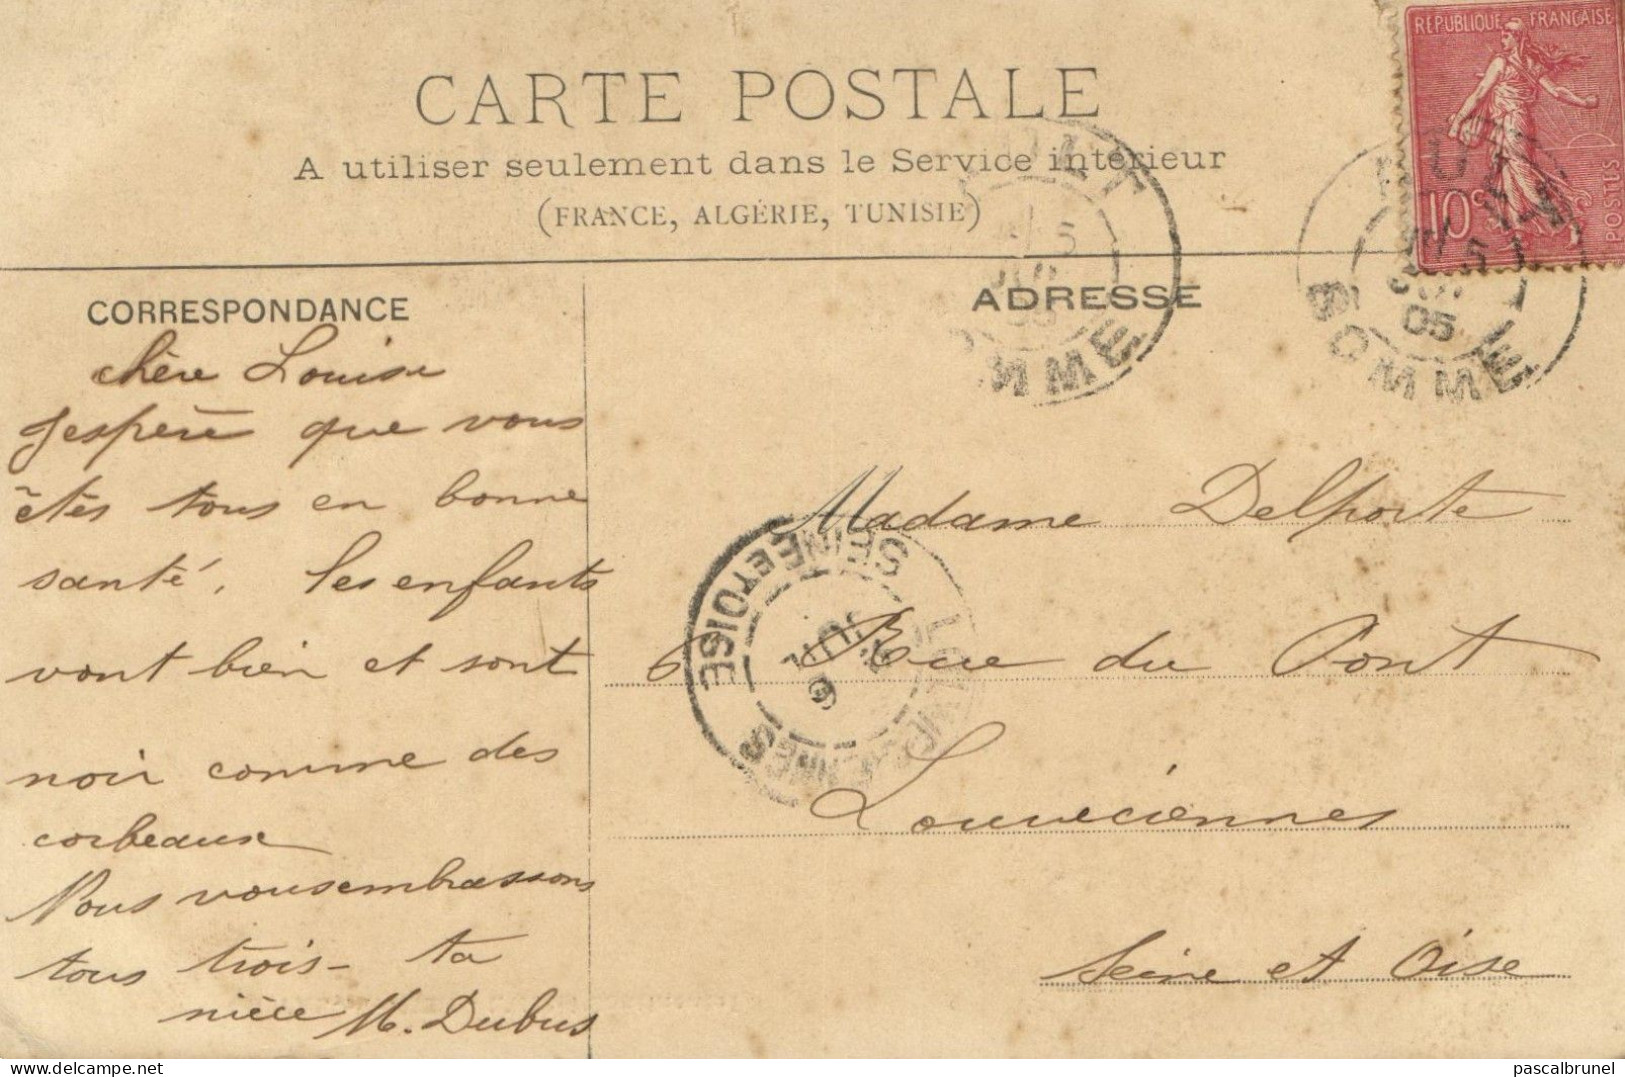 CARTE POSTALE
A utiliser seulement dans le Service intérieur
(FRANCE, ALGÉRIE, TUNISIE)
RÉPUBLIQUE FRANÇAISE
10c
POSTES
5
05
SOMME
5
05
OMME
CORRESPONDANCE
chère Louise
J'espère que vous
êtes tous en bonne
santé, les enfants
vont bien et sont
noir comme des
corbeaux
Nous vous embrassons
tous trois - ta
nièce M. Dubus
ADRESSE
Madame Delporte
6 Rue du Pont
Louveciennes
Seine et Oise
SEINE ET OISE
6
delcampe.net
pascalbrunel